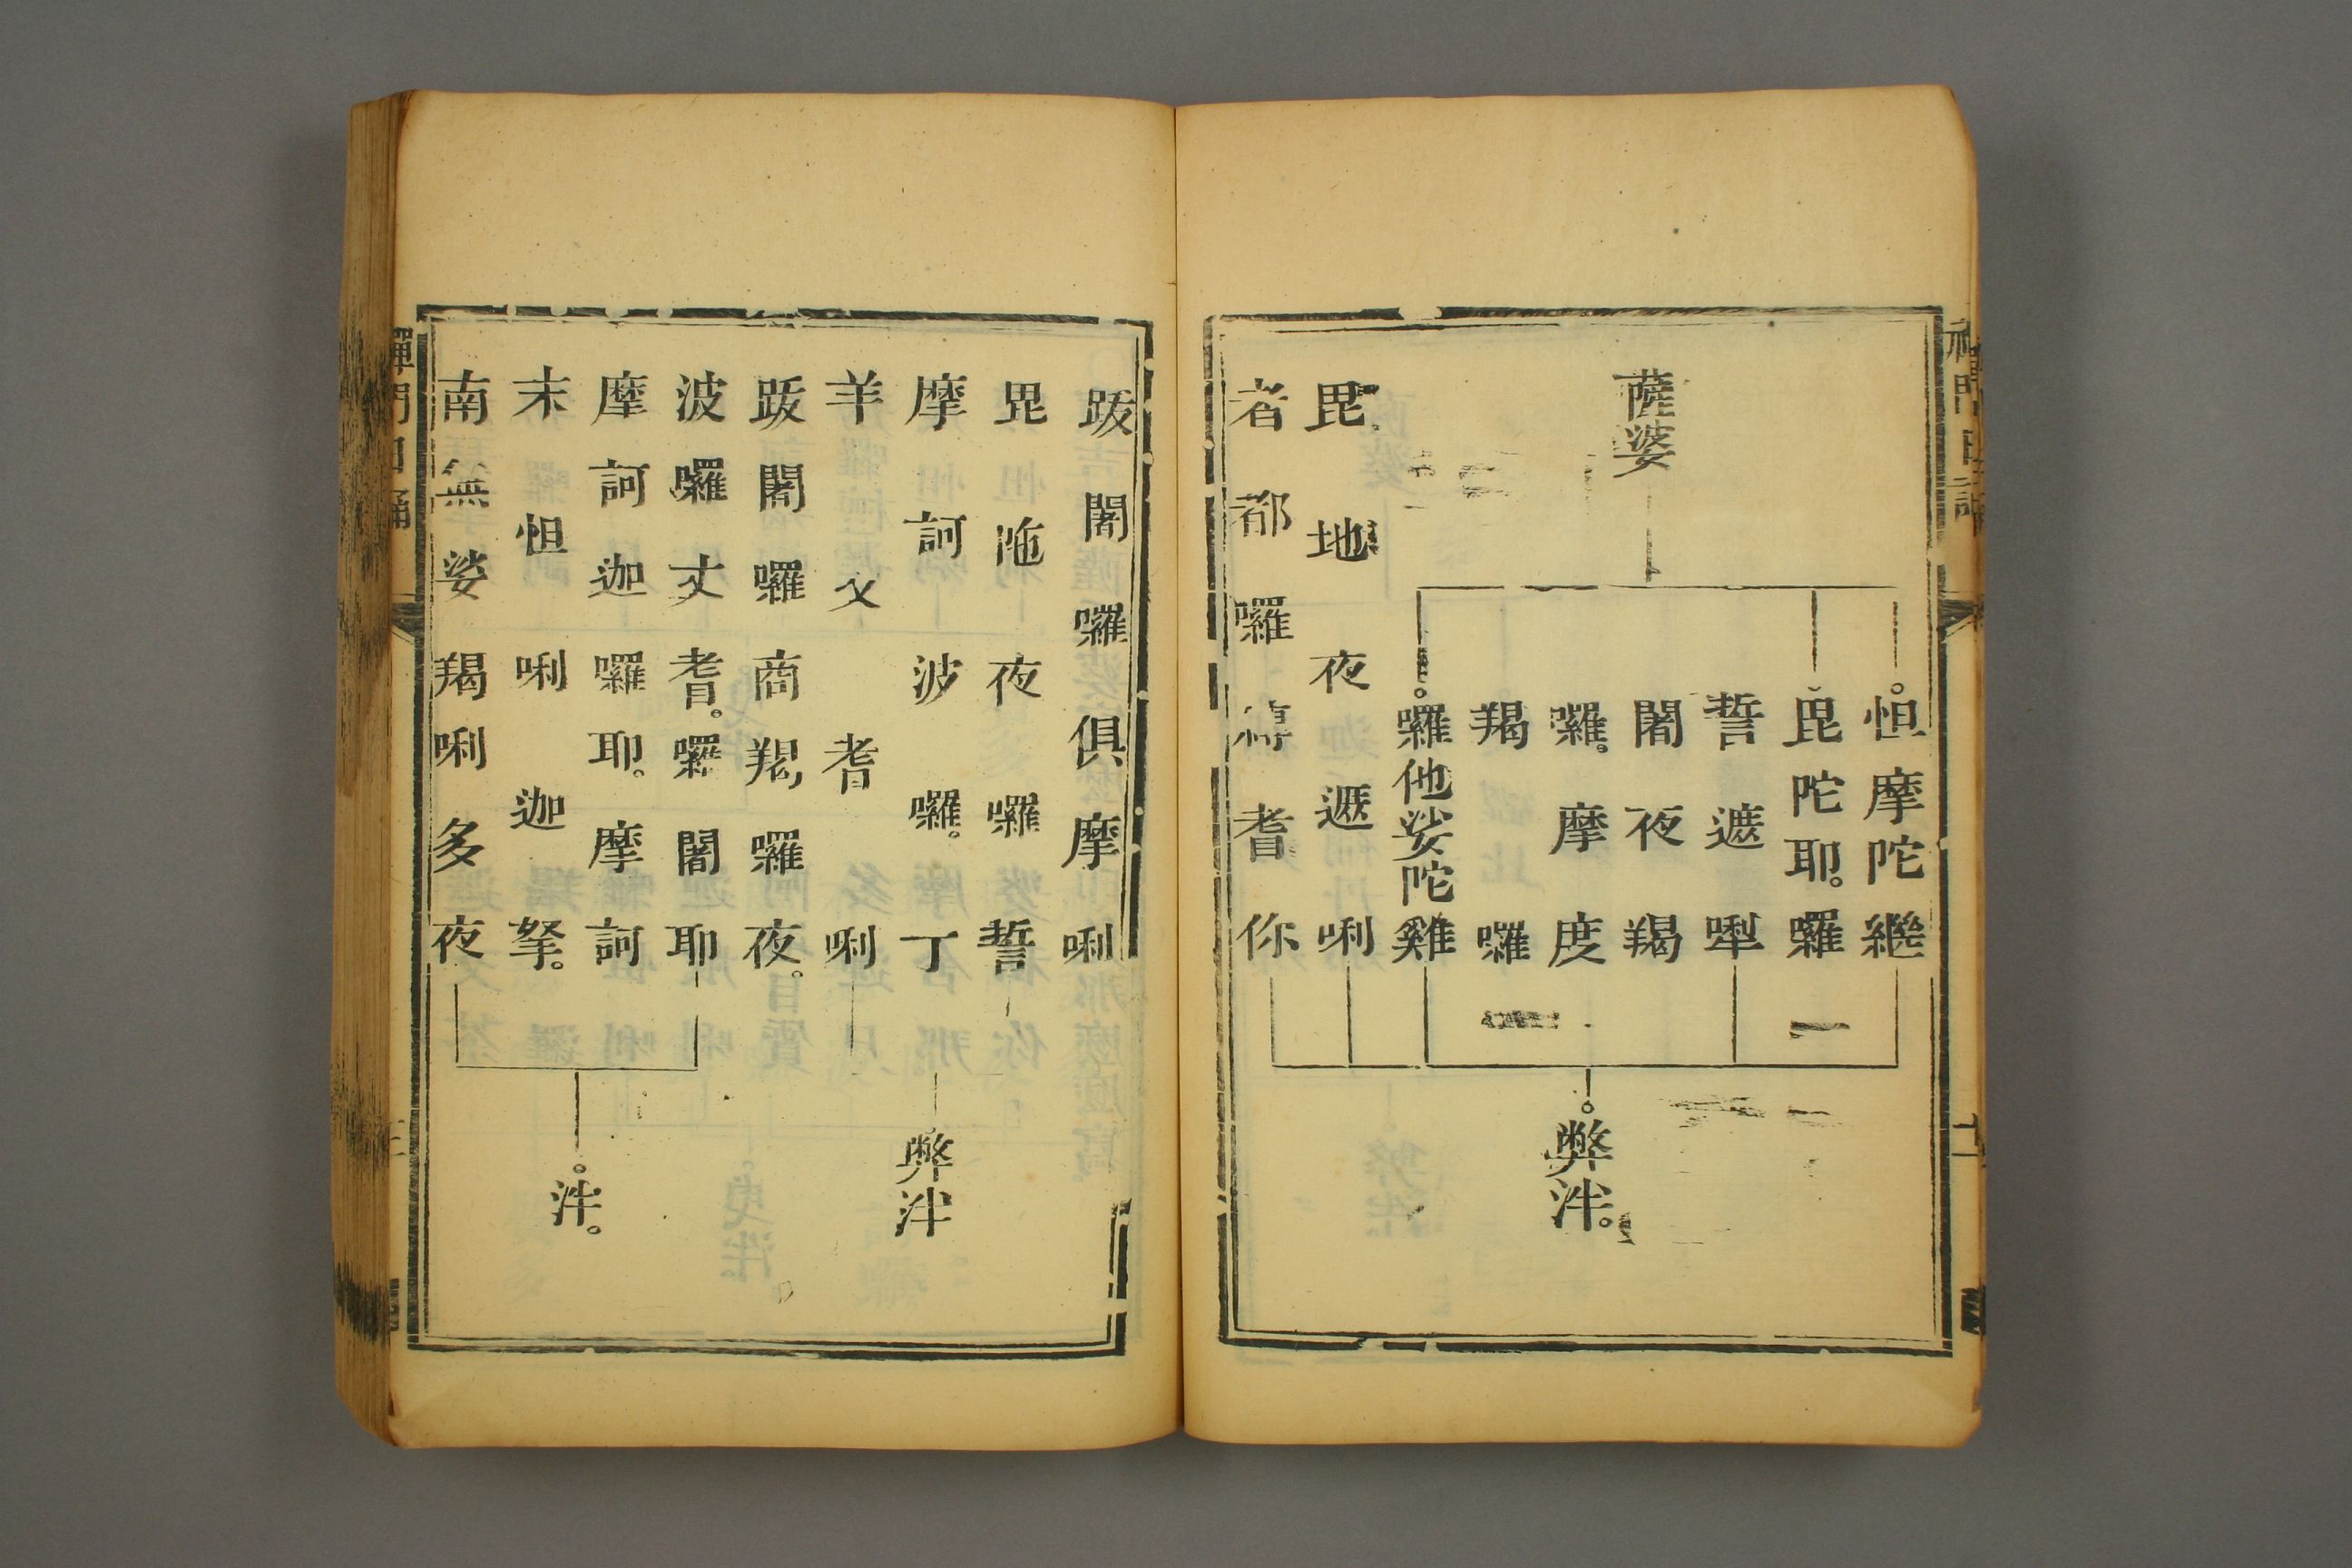 薩婆
怛摩陀繼
毘陀耶。囉
誓遮㘑
闍夜羯
囉。摩度
羯囉
囉他娑陀雞
毘地夜遲唎
者都囉耆你
弊泮。
跋闍囉俱摩唎
毘陁夜囉誓
摩訶波囉。丁
羊乂耆唎
弊泮
跋闍囉商羯囉夜。
波囉丈耆。囉闍耶
摩訶迦囉耶。摩訶
末怛唎迦拏。
南無娑羯唎多夜
泮。
禪門日誦